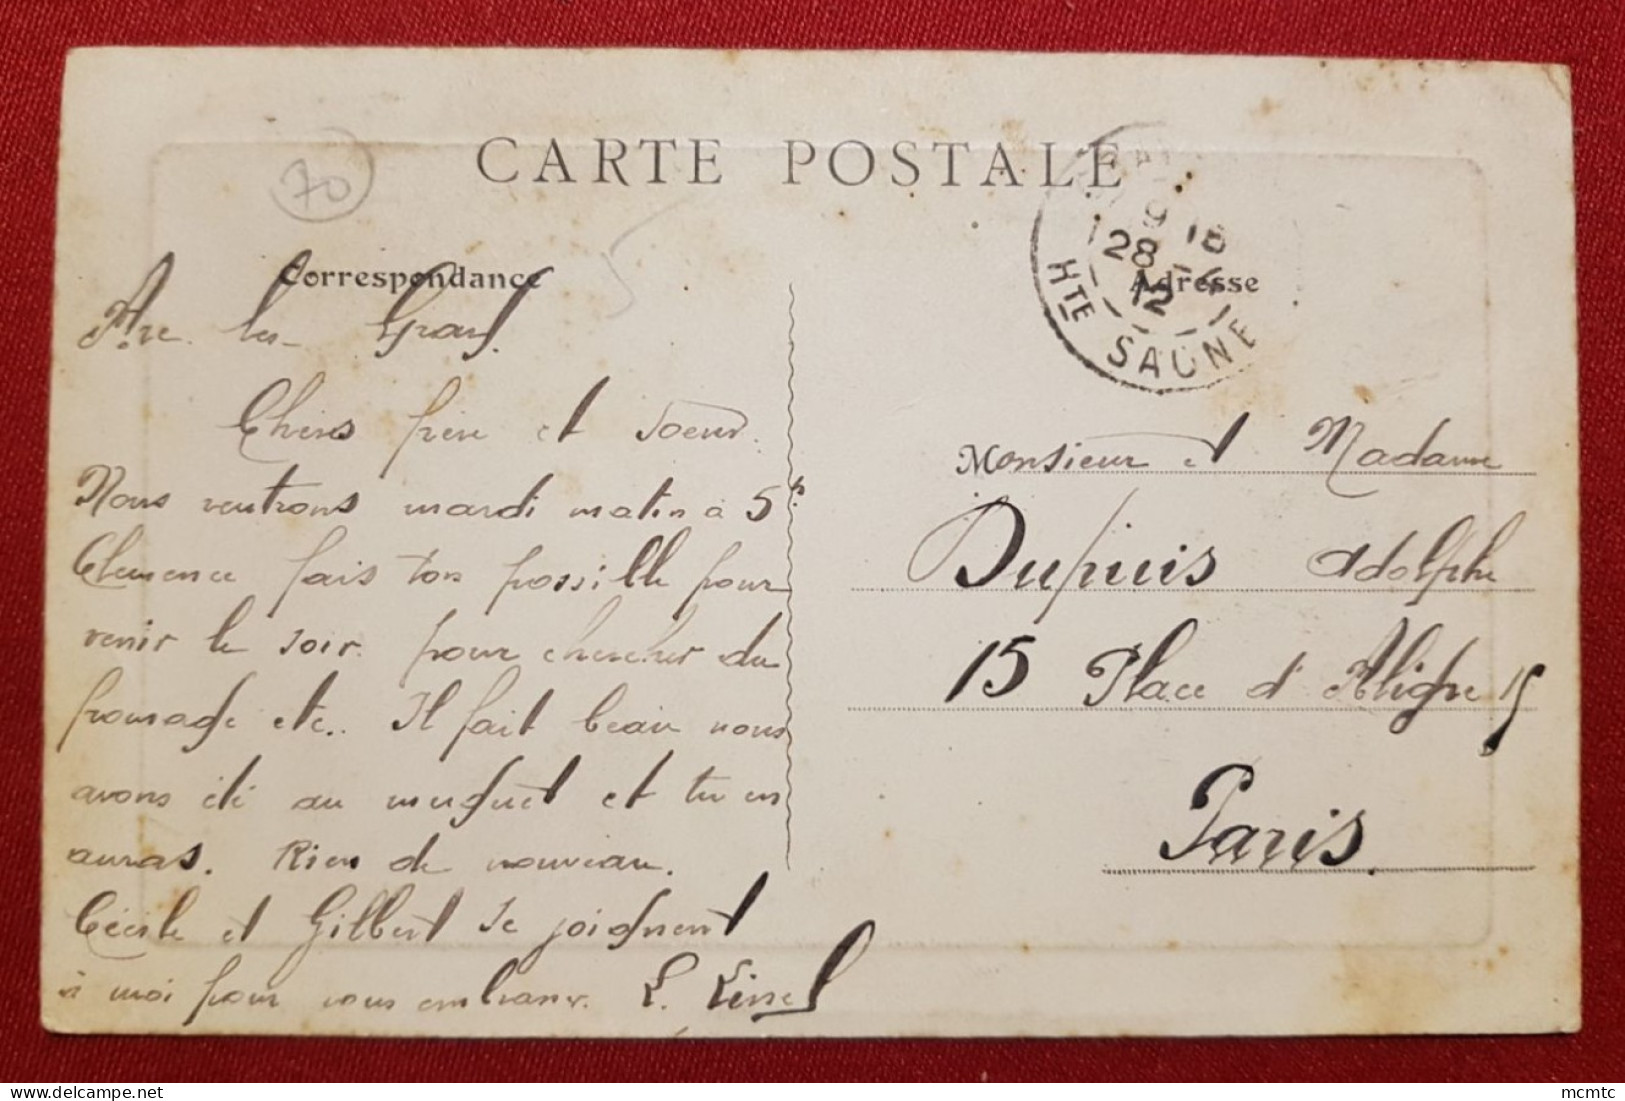 70
CARTE POSTALE
Correspondance
les Gray
Chers frère et Soeur.
Nous rentrons mardi matin à 5h.
Clemence fais ton possible pour
venir le soir. pour chercher du
fromage etc.. Il fait beau nous
avons été au muguet et tu en
auras. Rien de nouveau.
Cécile et Gilbert se joignent
à moi pour vous embrasser. L.
18
28 - 4
12
Hte SAÔNE
Adresse
Monsieur et Madame
Dupuis Adolphe
15 Place d'Aligre 15
Paris
mcmtc